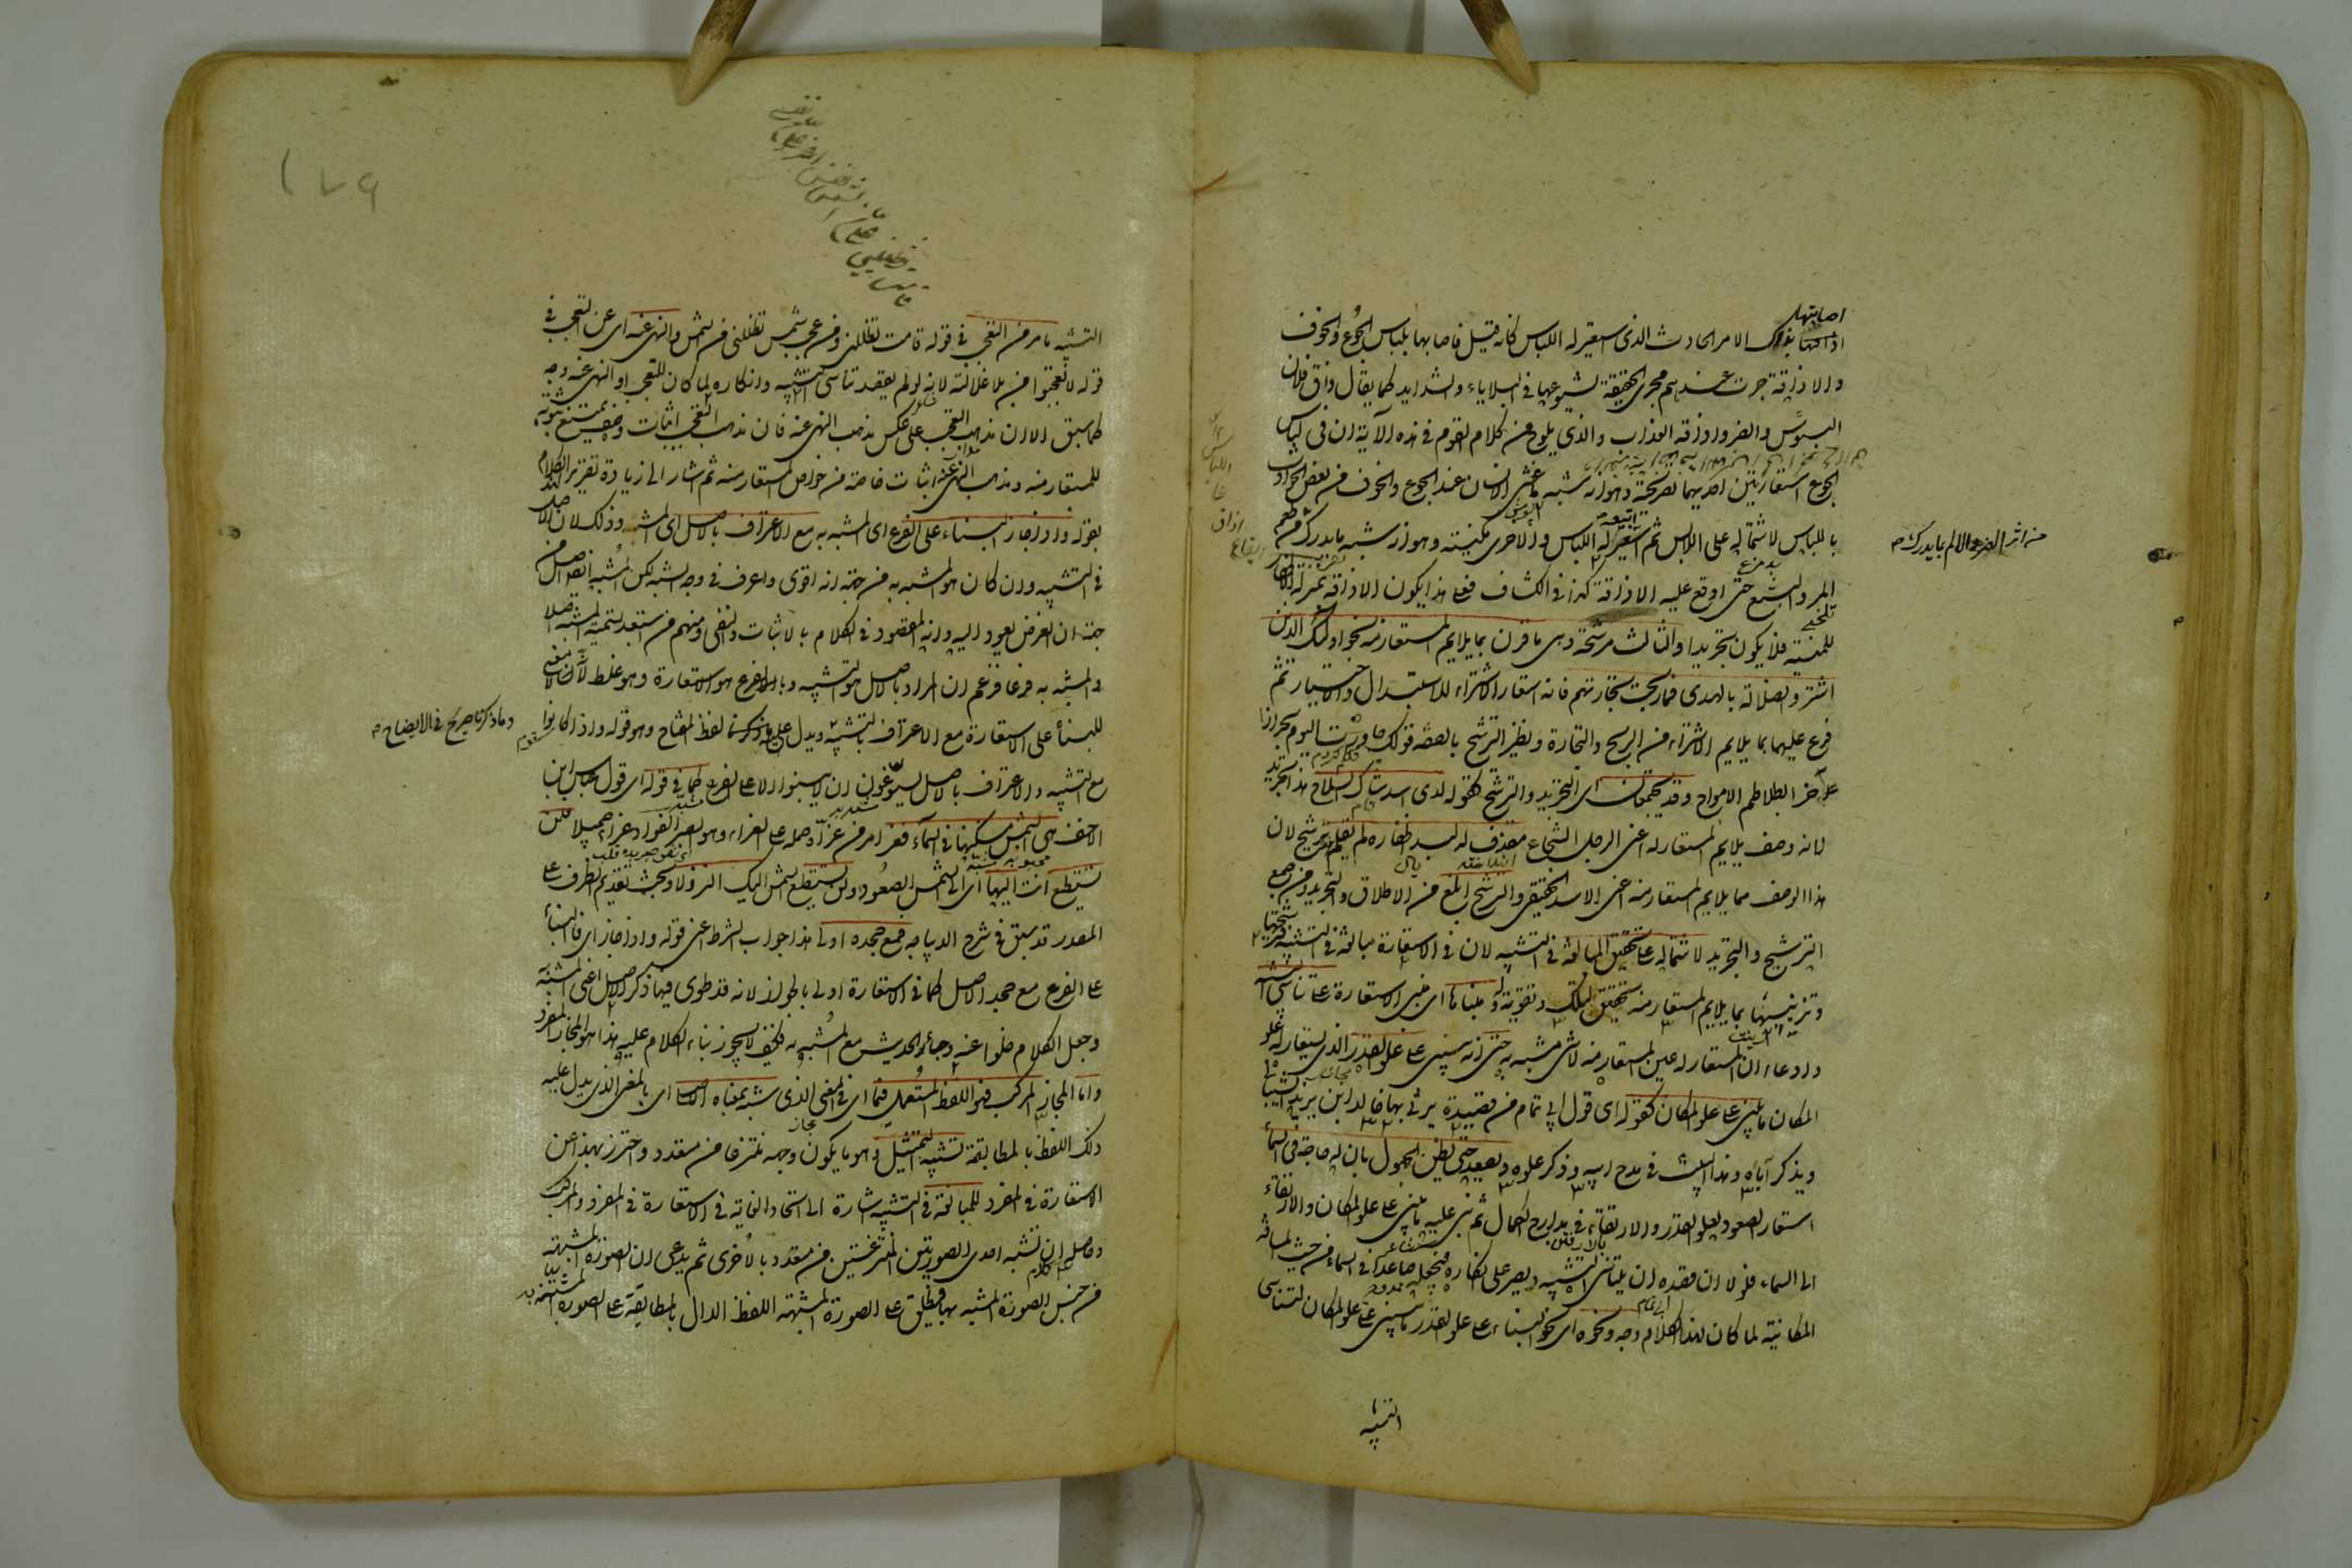 اصابتها
اذاقها بذلك الامر الحادث الذي استعير له اللباس كانه قيل فاصابها بلباس الجوع والخوف
والاذاقة جرت عندهم مجرى الحقيقة لشيوعها في البلايا والشدايد كما يقال ذاق فلان
البؤس والضر واذاقه العذاب والذي يلوح من كلام القوم في هذه الآية ان في لباس
الجوع استعارتين احديهما تصريحية وهو انه شبه ما غشى الانسان عند الجوع والخوف من بعض الحوادث
باللباس لاشتماله على اللابس ثم استعير له اللباس والاخرى مكنية وهو انه شبه ما يدرك من طعم
من اثر الضر والالم بما يدرك
المر والبشع حتى اوقع عليه الاذاقة كذا في الكشاف فعلى هذا يكون الاذاقة بمنزلة الاظفار
للمنية فلا يكون تجريدا والثالث مرشحة وهي ما قرن بما يلايم المستعار منه نحو اولئك الذين
اشتروا الضلالة بالهدى فما ربحت تجارتهم فانه استعار الاشتراء للاستبدال والاختيار ثم
فرع عليها بما يلايم الاشتراء من الربح والتجارة ونظير الترشيح بالصفة قولك جاورت اليوم بحرا
زاخرا متلاطم الامواج وقد يجتمعان اي التجريد والترشيح كقوله لدى اسد شاك السلاح هذا تجريد
لانه وصف يلايم المستعار له اعنى الرجل الشجاع مقذف له لبد اظفاره لم تقلم ترشيح لان
هذا الوصف مما يلايم المستعار منه اعنى الاسد الحقيقي والترشيح ابلغ من الاطلاق والتجريد ومن جمع
الترشيح والتجريد لاشتماله على تحقيق المبالغة في التشبيه لان في الاستعارة مبالغة في التشبيه فترشيحها
وتزيينها بما يلايم المستعار منه تحقيق لذلك وتقوية له ومبناها اي مبنى الاستعارة على تناسي التشبيه
وادعاء ان المستعار له عين المستعار منه لا شيء مشبه به حتى انه يبنى على علو القدر الذي يستعار له علو
المكان ما يبنى على علو المكان كقوله اي قول ابي تمام من قصيدة يرثي بها خالد ابن يزيد الشيباني
ويذكر آباه وهذا البيت في مدح ابيه وذكر علوه ويصعد حتى يظن الجهول بان له حاجة في السماء
استعار الصعود لعلو القدر والارتقاء في مدارج الكمال ثم بنى عليه ما يبنى على علو المكان والارتقاء
الى السماء فلولا ان قصده ان يتناسى التشبيه ويصر على انكاره فيجعله صاعدا في السماء من حيث المسافة
المكانية لما كان لهذا الكلام وجه ونحوه اي نحو البناء على علو القدر ما يبنى على علو المكان لتناسي
التشبيه
١٧٩
التشبيه ما مر من التعجب في قوله قامت تظللني ومن عجب شمس تظللني من الشمس والنهي عنه اي عن التعجب في
قوله لا تعجبوا من بلا غلالته لانه لو لم يقصد تناسي التشبيه وانكاره لما كان للتعجب او النهي عنه وجه
كما سبق الا ان مذهب التعجب على عكس مذهب النهي عنه فان مذهب التعجب اثبات وصف يمتنع ثبوته
للمستعار منه ومذهب النهي عنه اثبات خاصة من خواص المستعار منه ثم اشار الى زيادة تقرير لهذا الكلام
بقوله واذا جاز البناء على الفرع اي المشبه به مع الاعتراف بالاصل اي المشبه وذلك لان الاصل
في التشبيه وان كان هو المشبه به من جهة انه اقوى واعرف في وجه الشبه لكن المشبه ايضا اصل من
جهة ان الغرض يعود اليه وانه المقصود في الكلام بالاثبات والنفي ومنهم من استبعد تسمية المشبه اصلا
والمشبه به فرعا فزعم ان المراد بالاصل هو التشبيه وبالفرع هو الاستعارة وهو غلط لانه لا معنى
للبناء على الاستعارة مع الاعتراف بالتشبيه ويدل على ما ذكرنا لفظ المفتاح وهو قوله واذا كانوا
وما ذكرنا صريح في الايضاح
مع التشبيه والاعتراف بالاصل يسوغون ان لا يبنوا الا على الفرع كما في قوله اي قول عباس ابن
الاحنف هي الشمس مسكنها في السماء فعز امر من عزاه حمله على العزاء وهو الصبر الفؤاد عزاء جميلا فلن
تستطيع انت اليها اي الى الشمس الصعود ولن تستطيع الشمس اليك النزولا وبحث تقديم الظرف على
المصدر قد سبق في شرح الديباجة فمع جحده اولى هذا جواب الشرط اعنى قوله واذا جاز اي فالبناء
على الفرع مع جحد الاصل كما في الاستعارة اولى بالجواز لانه قد طوى فيها ذكر الاصل اعنى المشبه
وجعل الكلام خلوا عنه وجاء الحديث مع المشبه به فكيف لا يجوز بناء الكلام عليه هذا هو المجاز المفرد
واما المجاز المركب فهو اللفظ المستعمل فيما اي في المعنى الذي شبه بمعناه الاصلي اي بالمعنى الذي يدل عليه
ذلك اللفظ بالمطابقة تشبيه التمثيل وهو ما يكون وجهه منتزعا من متعدد واحترز بهذا عن
الاستعارة في المفرد للمبالغة في التشبيه اشارة الى اتحاد الغاية في الاستعارة في المفرد والمركب
وحاصله ان تشبه احدى الصورتين المنتزعتين من متعدد بالاخرى ثم يدعى ان الصورة المشبهة
من جنس الصورة المشبه بها فيطلق على الصورة المشبهة اللفظ الدال بالمطابقة على الصورة المشبهة بها